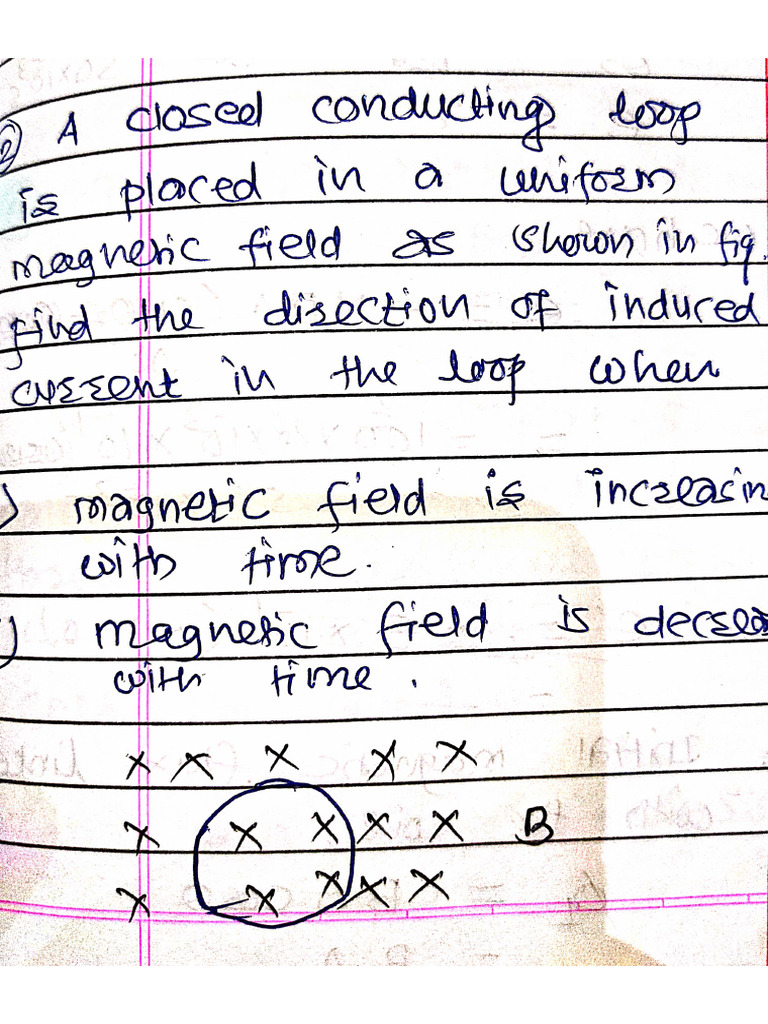 2) A closed conducting loop
is placed in a uniform
magnetic field as shown in fig.
find the direction of induced
current in the loop when
) magnetic field is increasin
with time.
) magnetic field is decrea
with time.
x x x x x
x x x x x B
x x x x x